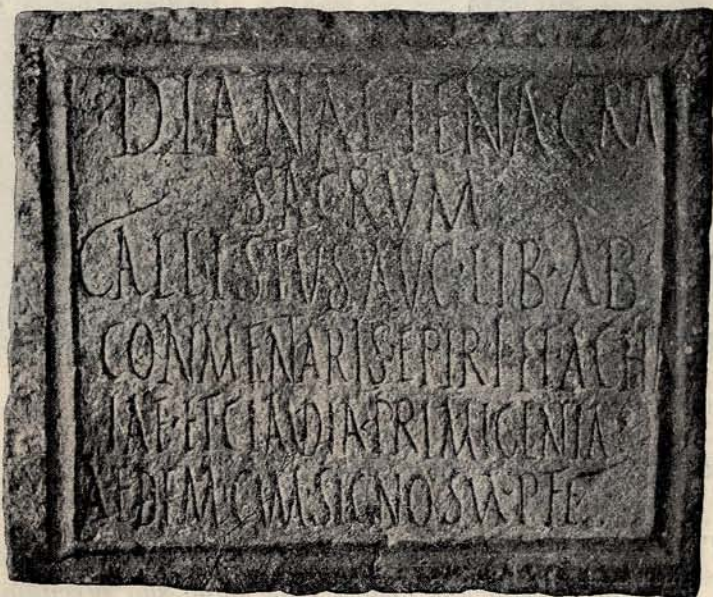 DIANAE TENAGRA
SACRVM
CALLISTVS AVG·LIB·AB
CONMENTARIS·EPIRI·ET·ACHA
IAE·ET CLAVDIA·PRIMIGENIA
AEDEM·CVM·SIGNO·SVA·P FE